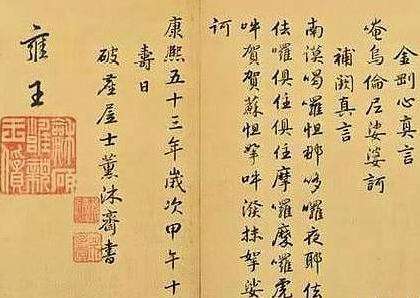 金剛心真言
唵烏倫尼娑婆訶
補闕真言
南謨喝囉怛那哆囉夜耶佉
佉囉俱住俱住摩囉麼囉虎
吽賀賀蘇怛拏吽潑抹拏娑
訶
康熙五十三年歲次甲午十
壽日
破塵居士薰沐齋書
雍王